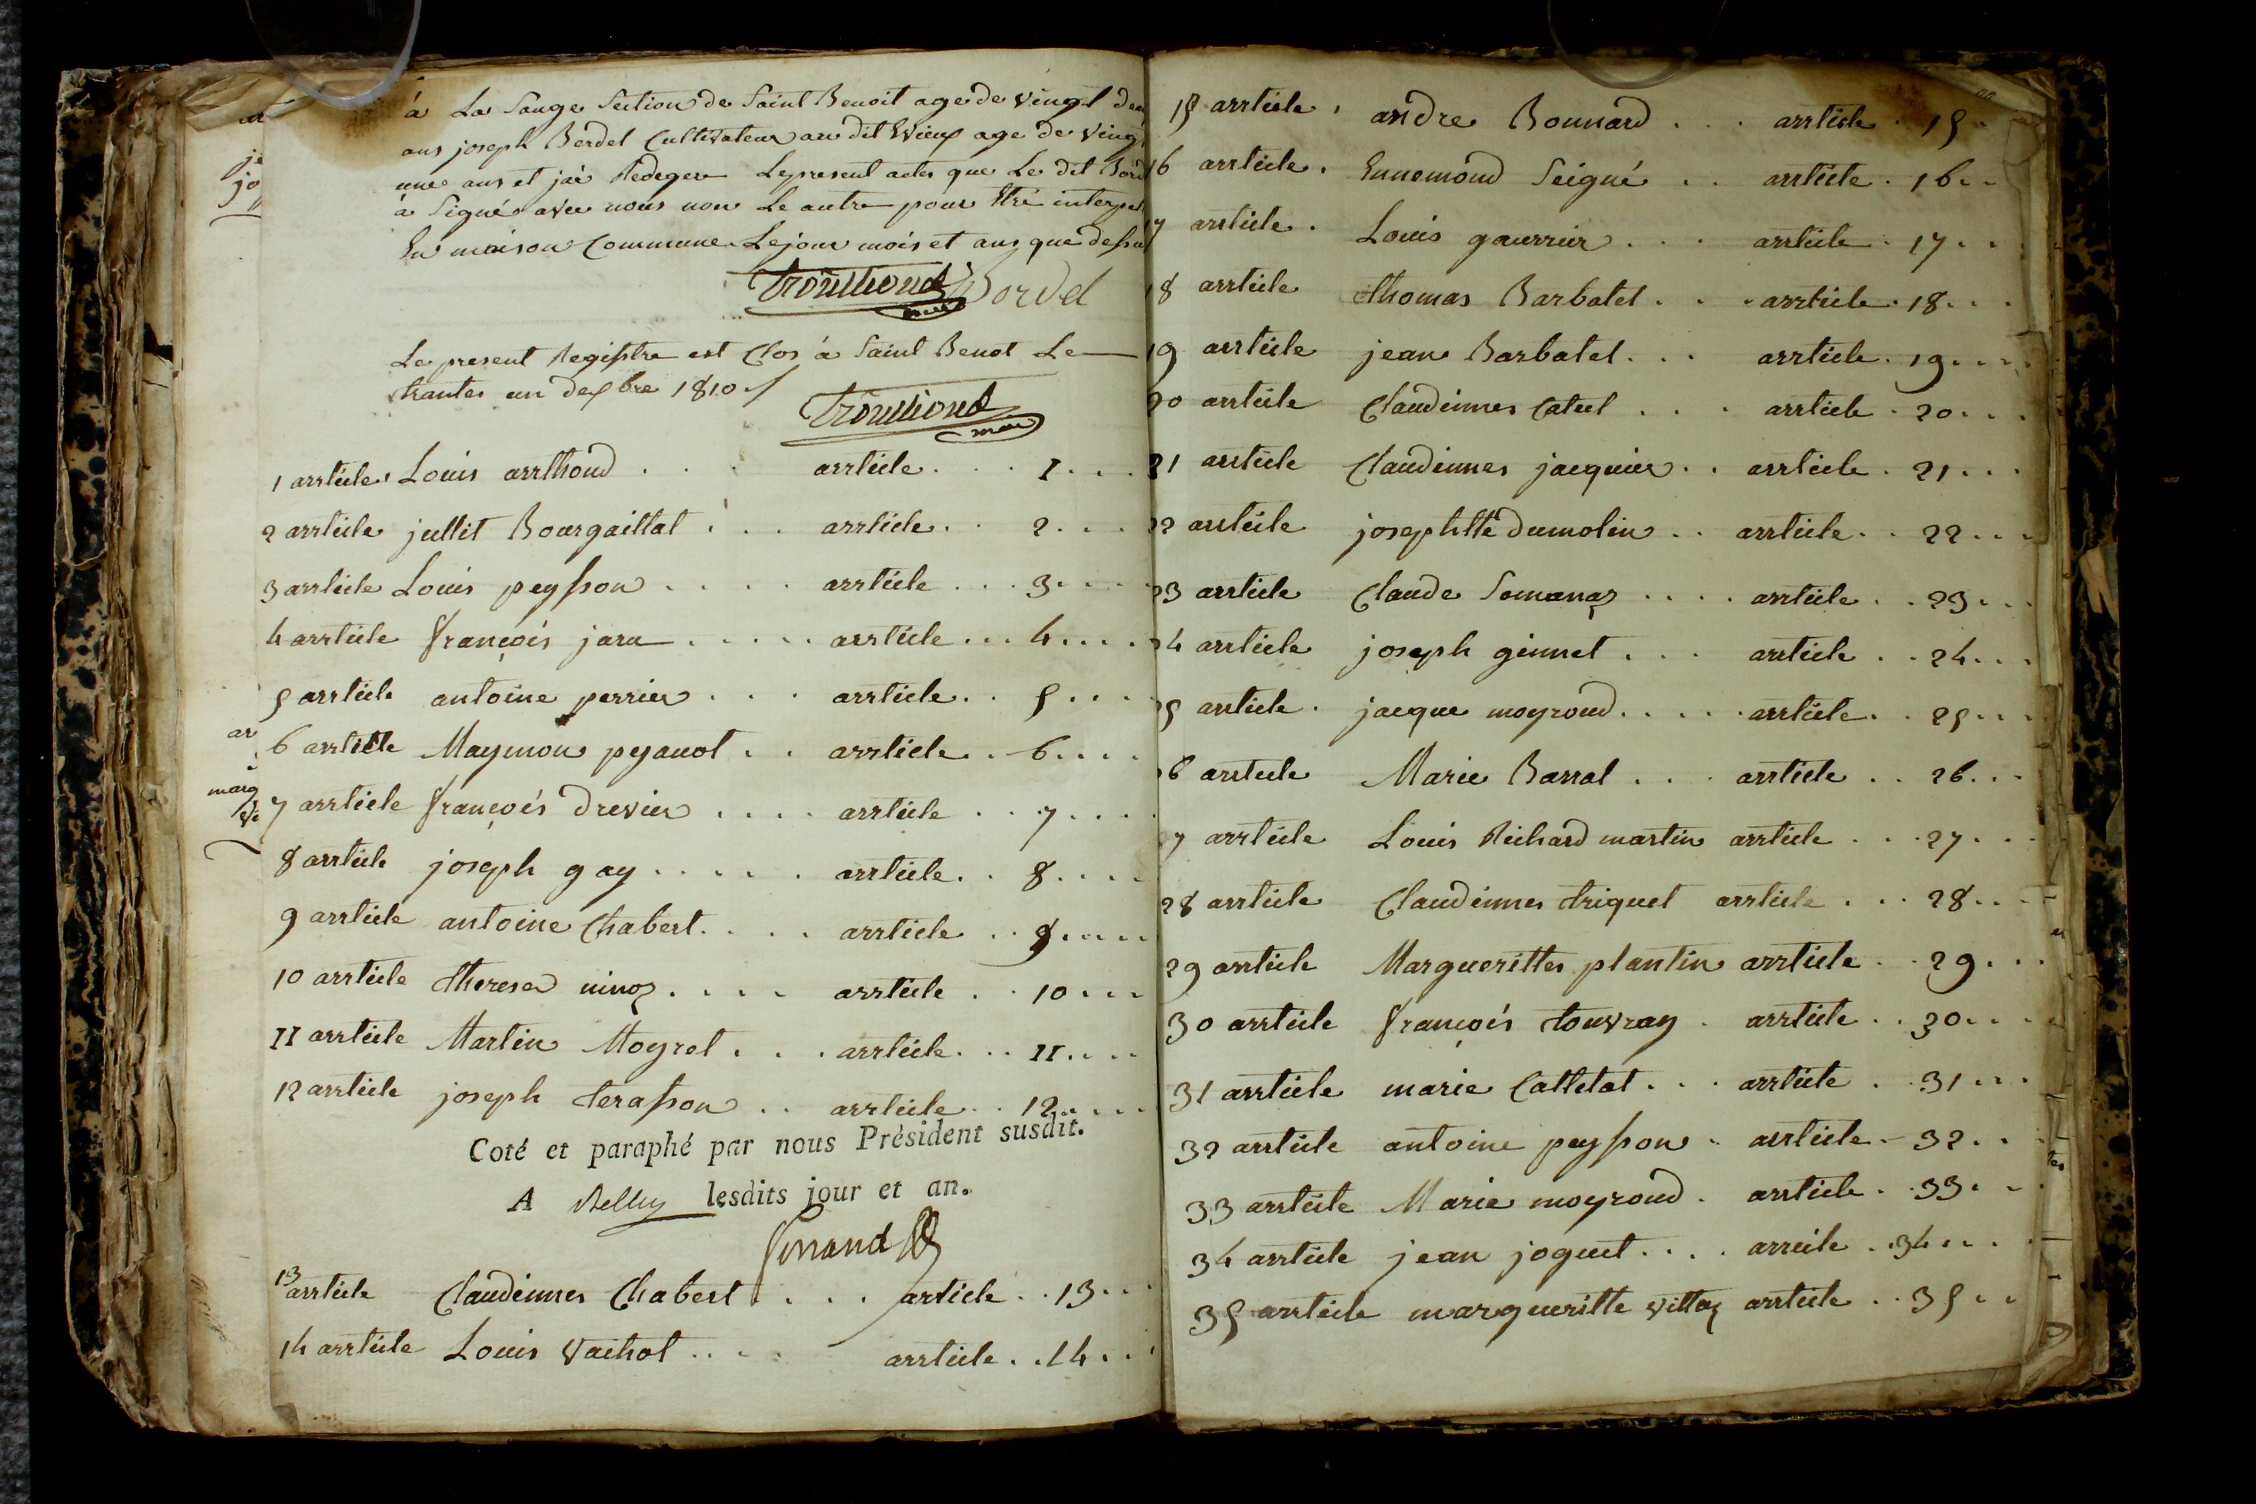 à La Sauge Section de Saint Benoit age de vingt deux
ans joseph Berdet Cultivateur au dit Vieux age de Vingt
une ans et jai Redeger Le present actes que Le dit Bord
à Signé avec nous non Le autre pour Etre interpel
En maison Commune Le jour mois et ans que dessu
Trouilloud Bordel
maire
Le present Registre est Clos à Saint Benot Le
trantes un dexbre 1810
Trouilloud
maire
1 arrticle Louis arrthoud . . . arrticle . . . 1 . . .
2 arrticle jullit Bourgaillat . . . arrticle . . 2 . . .
3 arrticle Louis peysson . . . . arrticle . . . 3 . . . .
4 arrticle françois jara . . . . . arrticle . . . 4 . . . .
5 arrticle antoine perrier . . . arrticle . . 5 . . . .
6 arrticle Maymon peyanot . . arrticle . . 6 . . . .
7 arrticle françois drevier . . . . arrticle . . 7 . . . .
8 arrticle joseph gay . . . . . arrticle . . 8 . . . .
9 arrticle antoine Chabert . . . . arrticle . . 9 . . . .
10 arrticle theresa ninoz . . . . arrticle . . 10 . . .
11 arrticle Martin Moyret . . . arrticle . . . 11 . . . .
12 arrticle joseph terasson . . arrticle . . 12 . . . .
Coté et paraphé par nous Président susdit.
A Belley lesdits jour et an.
13 arrticle Claudinnes Chabert . . . article . . 13 . . .
14 arrticle Louis Vaihot . . . . arrticle . . 14 . . .
15 arrticle . andre Bonnard . . . arrticle . 15 .
16 arrticle . Ennemond Seigné . . arrticle . 16 . .
17 arrticle . Louis gaurrier . . . arrticle . 17 . .
18 arrticle thomas Barbatet . . . arrticle . 18 . . .
19 arrticle jean Barbatet . . . arrticle . 19 . . . .
20 arrticle Claudinnes Catul . . . . arrticle . 20 . . .
21 arrticle Claudinnes jacquier . . arrticle . 21 . . .
22 arrticle josephtte dumolin . . arrticle . . 22 . . .
23 arrticle Claude Somanaz . . . . arrticle . . 23 . . .
24 arrticle joseph ginnet . . . arrticle . . 24 . . .
25 arrticle . jacque moyroud . . . . . arrticle . . 25 . . .
26 arrticle Marie Barral . . . . arrticle . . 26 . . .
27 arrticle Louis Richard martin arrticle . . . 27 . . .
28 arrticle Claudinnes triquet arrticle . . . 28 . . .
29 arrticle Margueritter plantin arrticle . . 29 . . .
30 arrticle françois touvray . arrticle . . 30 . . . .
31 arrticle marie Calletat . . . arrticle . 31 . . .
32 arrticle antoine peysson . arrticle . 32 . .
33 arrticle Marie moyroud . arrticle . . 33 . . .
34 arrticle jean joguet . . . . arrcile . 34 . . .
35 arrticle margueritte vittoz arrticle . . 35 . .